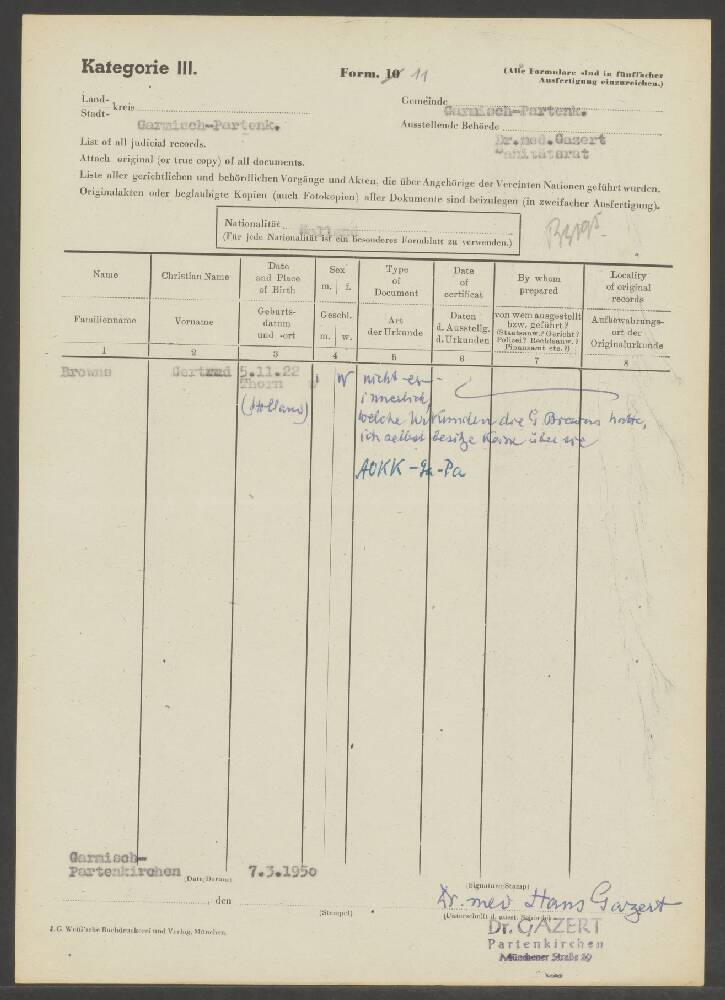 Kategorie III.
Form. 10 11
(Alle Formulare sind in fünffacher
Ausfertigung einzureichen.)
Land-
Stadt- kreis
Garmisch-Partenk.
Gemeinde Garmisch-Partenk.
Ausstellende Behörde
Dr.med.Gazert
Sanitätsrat
List of all judicial records.
Attach original (or true copy) of all documents.
Liste aller gerichtlichen und behördlichen Vorgänge und Akten, die über Angehörige der Vereinten Nationen geführt wurden.
Originalakten oder beglaubigte Kopien (auch Fotokopien) aller Dokumente sind beizulegen (in zweifacher Ausfertigung).
Nationalität Holland
(Für jede Nationalität ist ein besonderes Formblatt zu verwenden.)
Name
Christian Name
Date
and Place
of Birth
Sex
m. f.
Type
of
Document
Date
of
certificat
By whom
prepared
Locality
of original
records
Familienname
Vorname
Geburts-
datum
und -ort
Geschl.
m. w.
Art
der Urkunde
Daten
d. Ausstellg.
d. Urkunden
von wem ausgestellt
bzw. geführt?
(Staatsanw.? Gericht?
Polizei? Bezirksanw.?
Finanzamt etc.?)
Aufbewahrungs-
ort der
Originalurkunde
1 2 3 4 5 6 7 8
Browns Gertrud 5.11.22 w nicht er-
Thorn innerlich,
(Holland) welche Urkunden die G. Browns hatte,
ich selbst besitze keine über sie
AOKK-Ga-Pa
Garmisch-
Partenkirchen (Date/Datum) 7.3.1950
, den
(Stempel)
(Signature/Stamp)
Dr. med Hans Gazert
Dr. GAZERT
Partenkirchen
Münchener Straße 29
J. G. Weiß'sche Buchdruckerei und Verlag, München.